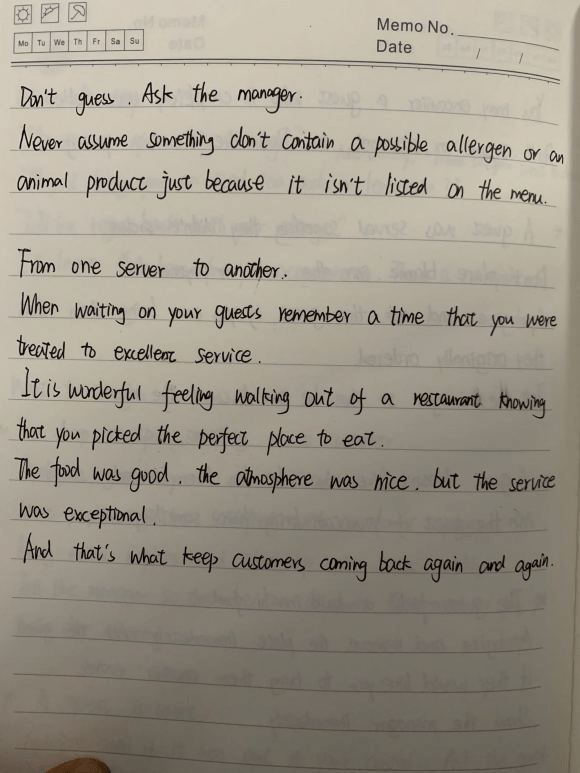 Memo No.
Mo Tu We Th Fr Sa Su
Date / /
Don't guess. Ask the manager.
Never assume something don't contain a possible allergen or an
animal product just because it isn't listed on the menu.
From one server to another.
When waiting on your guests remember a time that you were
treated to excellent service.
It is wonderful feeling walking out of a restaurant knowing
that you picked the perfect place to eat.
The food was good. the atmosphere was nice. but the service
was exceptional.
And that's what keep customers coming back again and again.